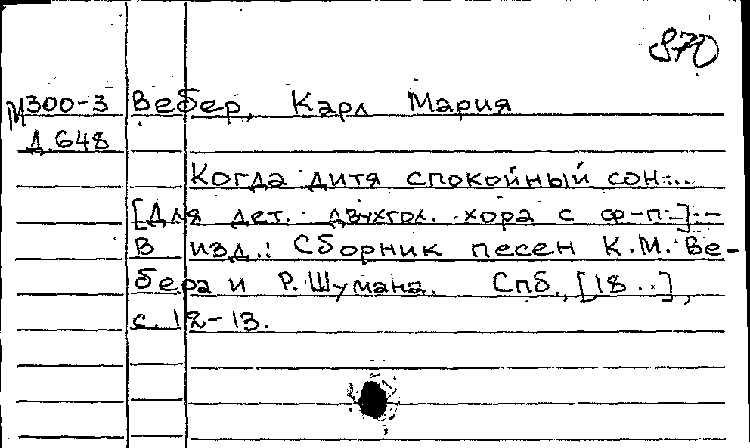 870
М300-3 Вебер, Карл Мария
Д.648
Когда дитя спокойный сон...
[Для дет. двухгол. хора с ф-п.].-
В изд.: Сборник песен К.М. Ве-
бера и Р. Шумана. Спб., [18..],
с. 12-13.